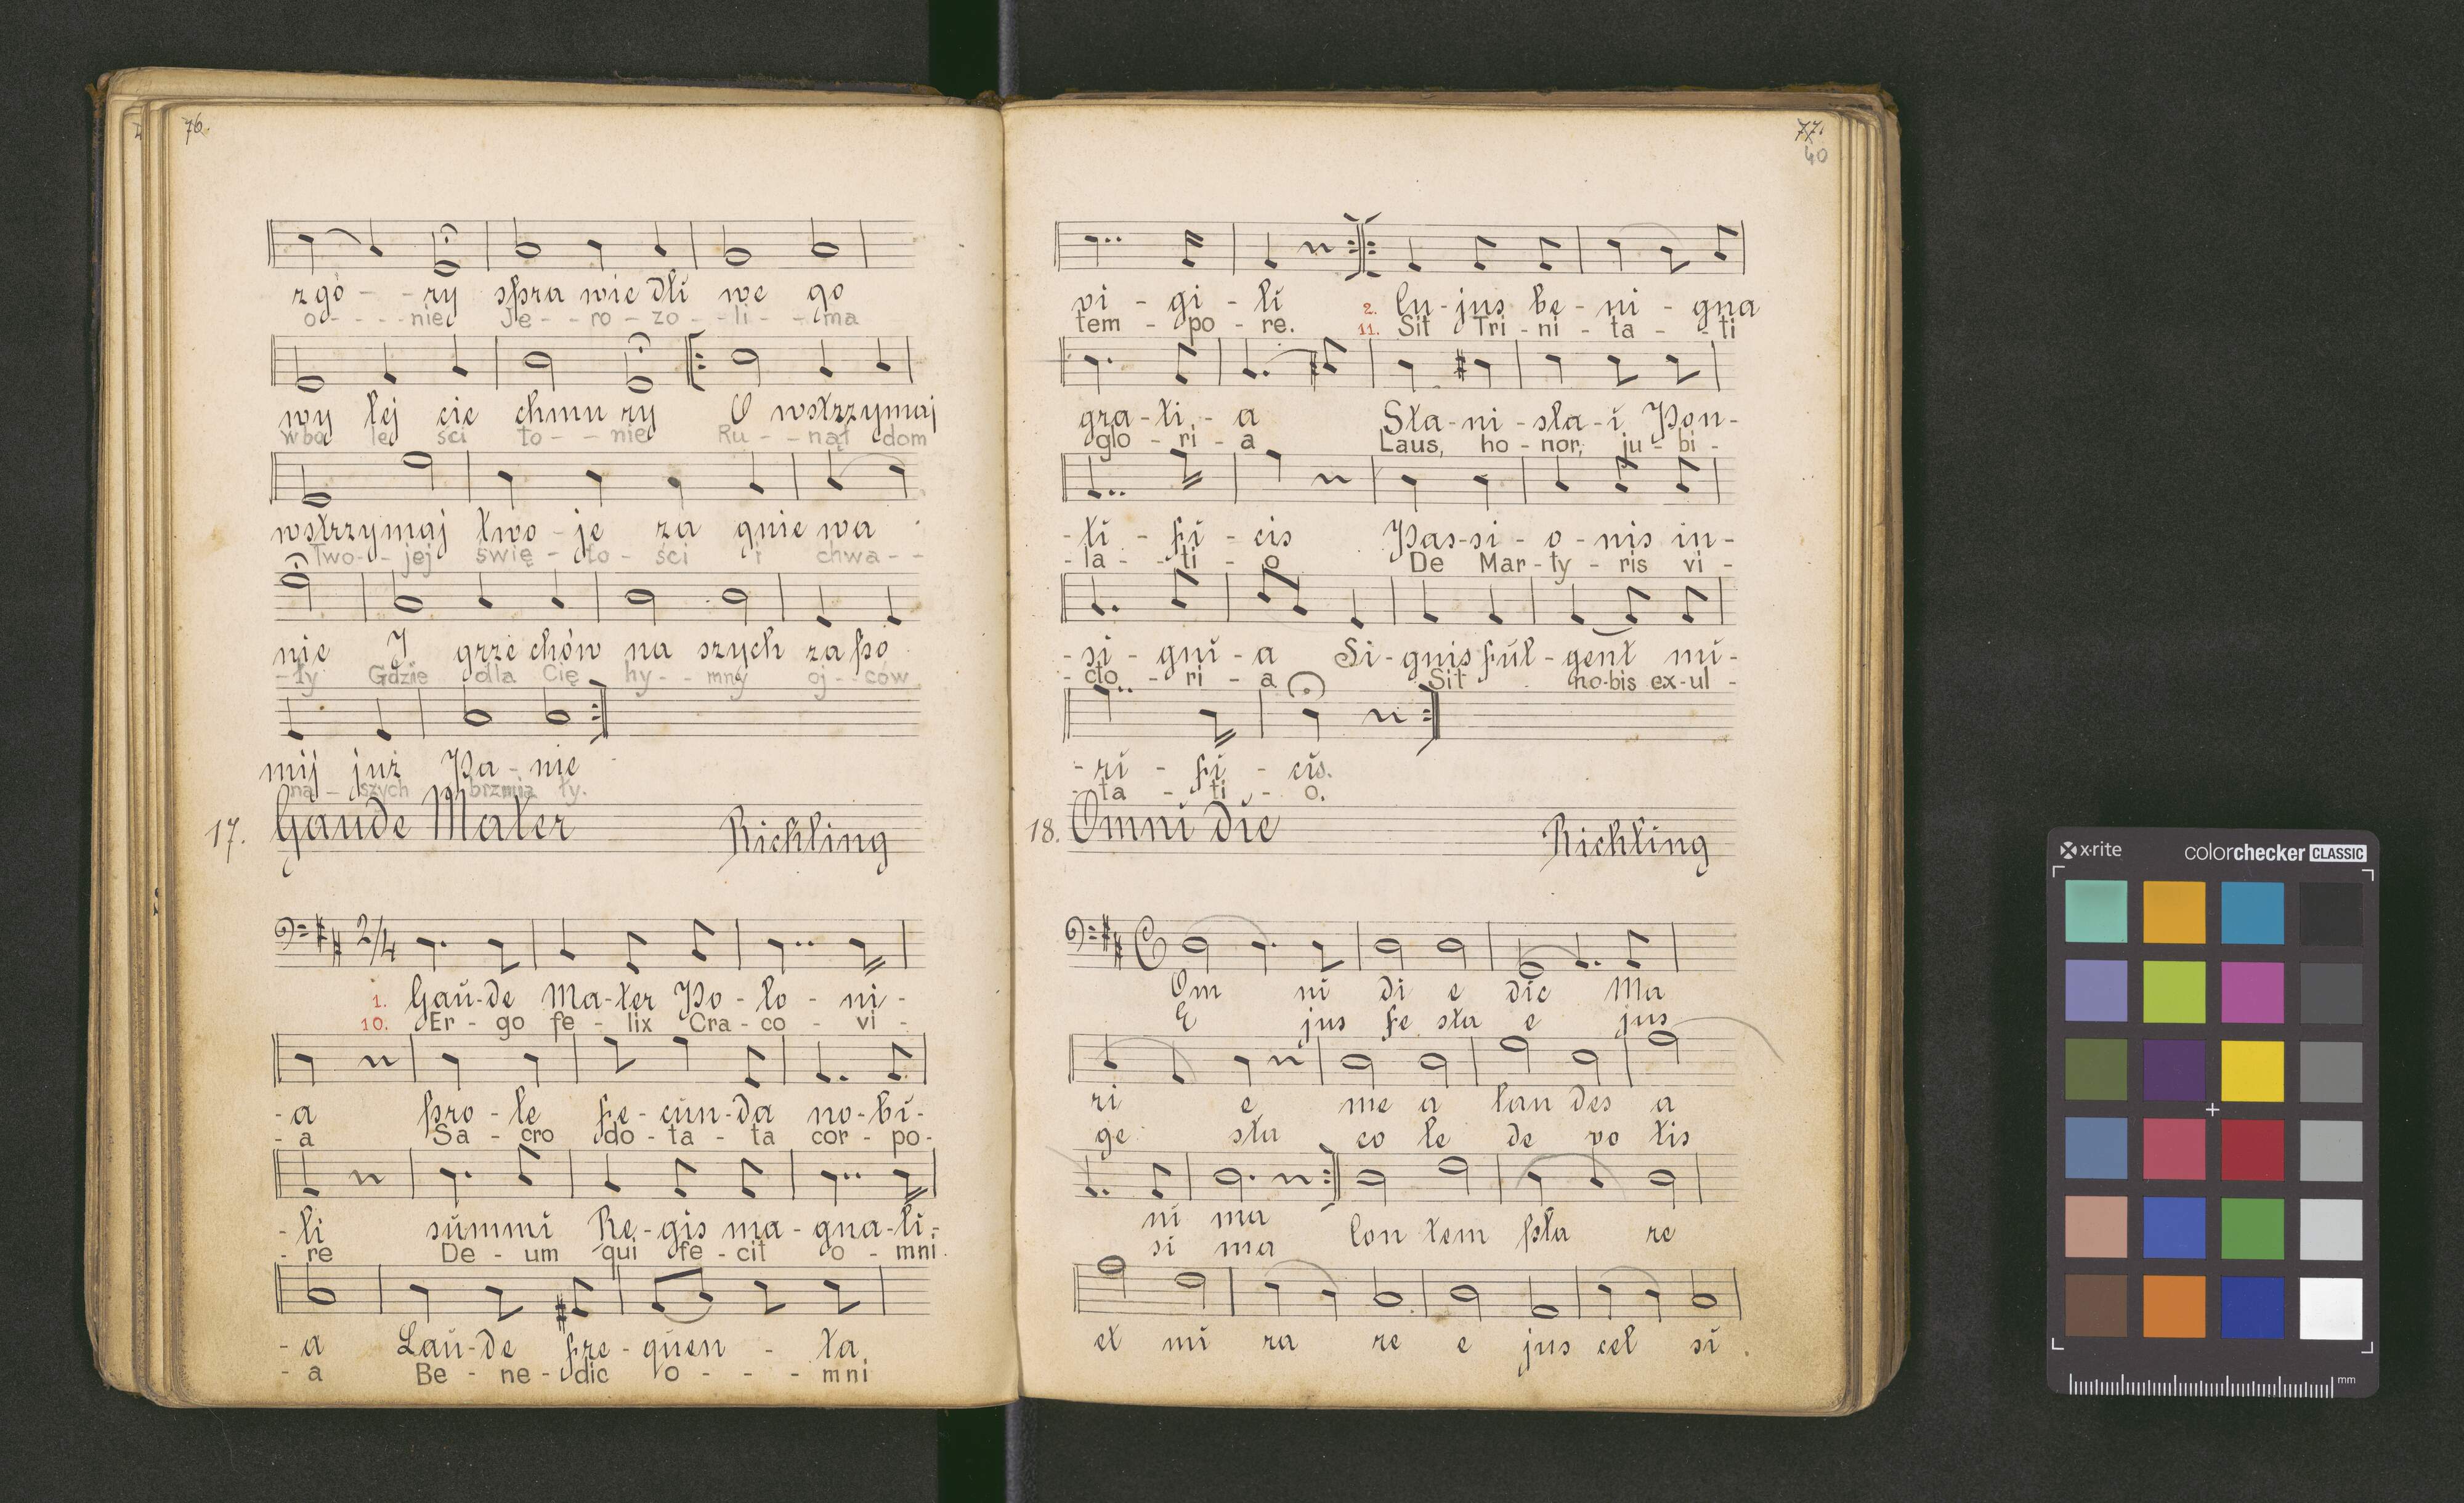 76.
z gó - - ry spra wie dli we go
o - - - niej Je - - ro - zo - - li - - ma
wy lej cie chmu ry O wstrzymaj
w bo le ści to - - niej Ru - - nął dom
wstrzymaj two - je za gnie wa
Two - - jej świę - to - ści i chwa - -
nie I grze chów na szych za po
- ły Gdzie dla Cię hy - - mny oj - - ców
mij już Pa - nie
na - szych brzmia ły.
17. Gaude Mater Richling
2/4
1. Gau - de Ma - ter Po - lo - ni -
10. Er - go fe - lix Cra - co - vi -
- a pro - le fe - cun - da no - bi -
- a Sa - cro do - ta - ta cor - po -
- li summi Re - gis ma - gna - li -
- re De - um qui fe - cit o - mni -
- a Lau - de fre - quen - ta
- a Be - ne - dic o - - - mni
77.
40
vi - gi - li 2. Cu - jus be - ni - gna
tem - po - re. 11. Sit Tri - ni - ta - - ti
gra - ti - a Sta - ni - sla - i Pon -
glo - ri - a Laus, ho - nor, ju - bi -
- ti - fi - cis Pas - si - o - nis in -
- la - - ti - o De Mar - ty - ris vi -
- si - gni - a Si - gnis ful - gent mi -
- cto - ri - a Sit no - bis ex - ul -
- ri - fi - cis.
ta - ti - o.
18. Omni die Richling
Om ni di e dic Ma
E jus fe sta e jus
ri e me a lau des a
ge sta co le de vo tis
ni ma Con tem pla re
si ma
et mi ra re e jus cel si
x·rite colorchecker CLASSIC
mm